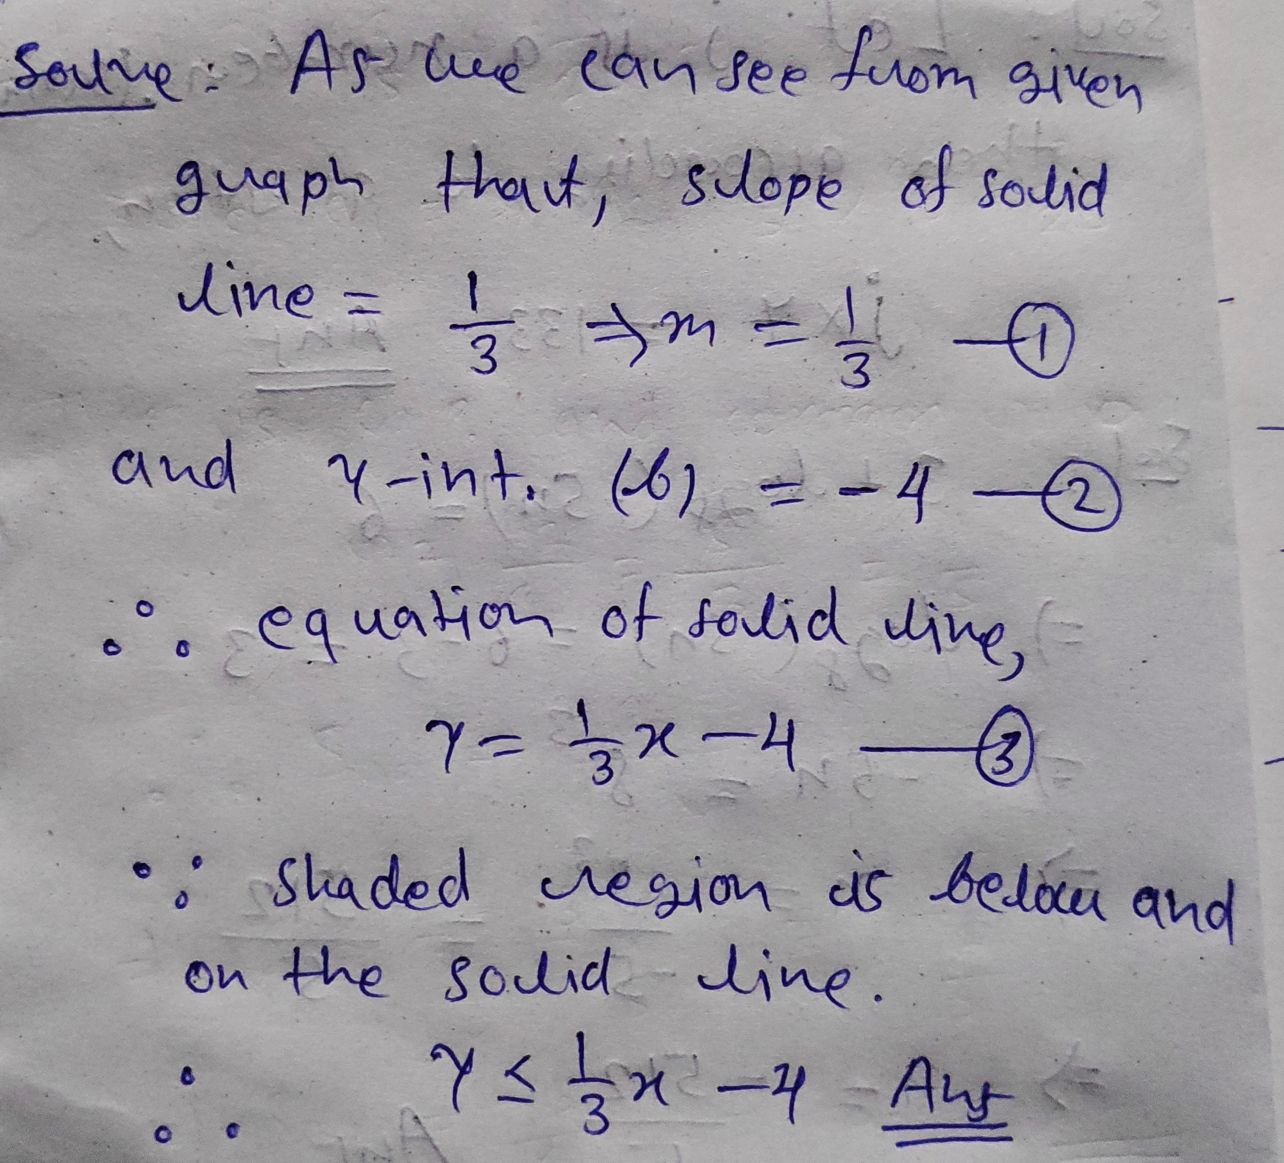 Solve: As we can see from given
graph that, slope of solid
line = 1/3 ⇒ m = 1/3 —①
and y-int. (b) = -4 —②
∴ equation of solid line,
y = 1/3 x - 4 —③
∵ shaded region is below and
on the solid line.
∴ y ≤ 1/3 x - 4 Ans